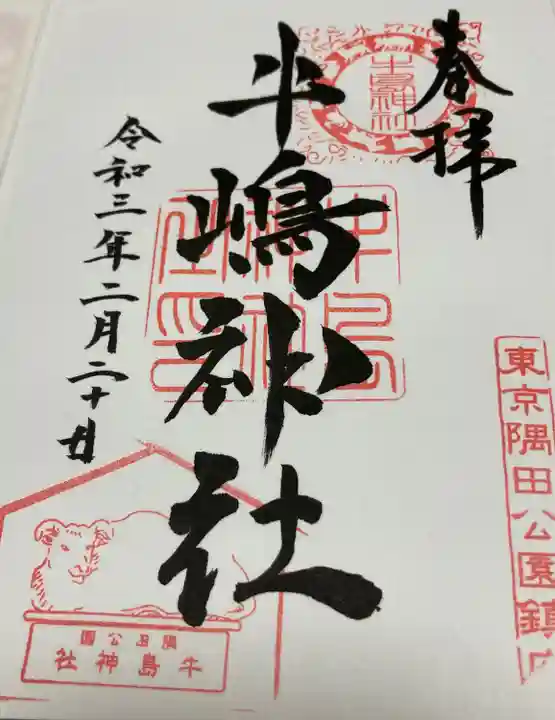 奉拝
牛嶋神社
令和三年二月二十日
牛島神社
東京隅田公園鎮
隅田公園
牛島神社